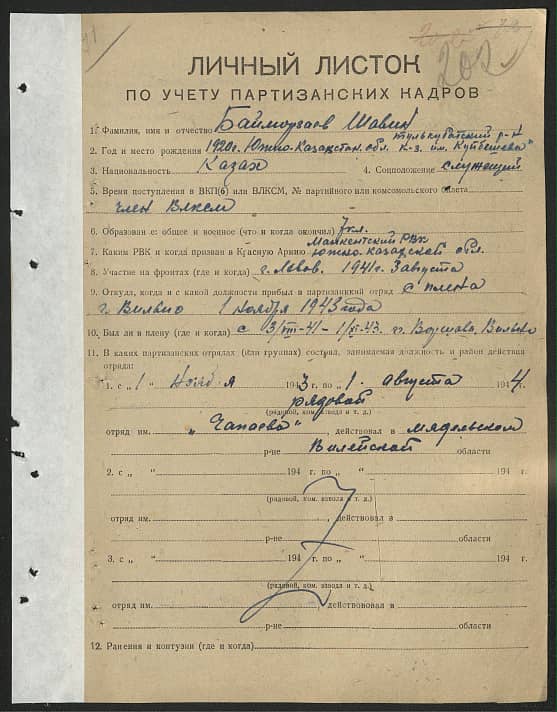 202
ЛИЧНЫЙ ЛИСТОК
ПО УЧЕТУ ПАРТИЗАНСКИХ КАДРОВ
1. Фамилия, имя и отчество Байморзаев Шавип
2. Год и место рождения 1920г. Южно-Казахстан. обл. тулькубасский р-н к-з им. Куйбешева
3. Национальность Казах 4. Соцположение служащий
5. Время поступления в ВКП(б) или ВЛКСМ, № партийного или комсомольского билета
член Влксм
6. Образование: общее и военное (что и когда окончил) 7кл.
7. Каким РВК и когда призван в Красную Армию Манкентский РВК Южно-Казахской обл.
8. Участие на фронтах (где и когда) г. Львов. 1941г. 3 августа
9. Откуда, когда и с какой должности прибыл в партизанский отряд с плена
г. Вильно 1 ноября 1943 года
10. Был ли в плену (где и когда) с 3/VIII-41 - 1/XI-43. гг. Вильно
11. В каких партизанских отрядах (или группах) состоял, занимаемая должность и район действия
отряда:
1. с „1" Ноября 1943 г. по „1" августа 1944
рядовой
(рядовой, ком. взвода и т. д.)
отряд им. „Чапаева" , действовал в мядельском
р-не Вилейской области
2. с „ " 194 г. по „ " 194 г.
(рядовой, ком. взвода и т. д.)
отряд им. , действовал в
р-не области
3. с „ " 194 г. по „ " 194 г.
(рядовой, ком. взвода и т. д.)
отряд им. , действовал в
р-не области
12. Ранения и контузии (где и когда)